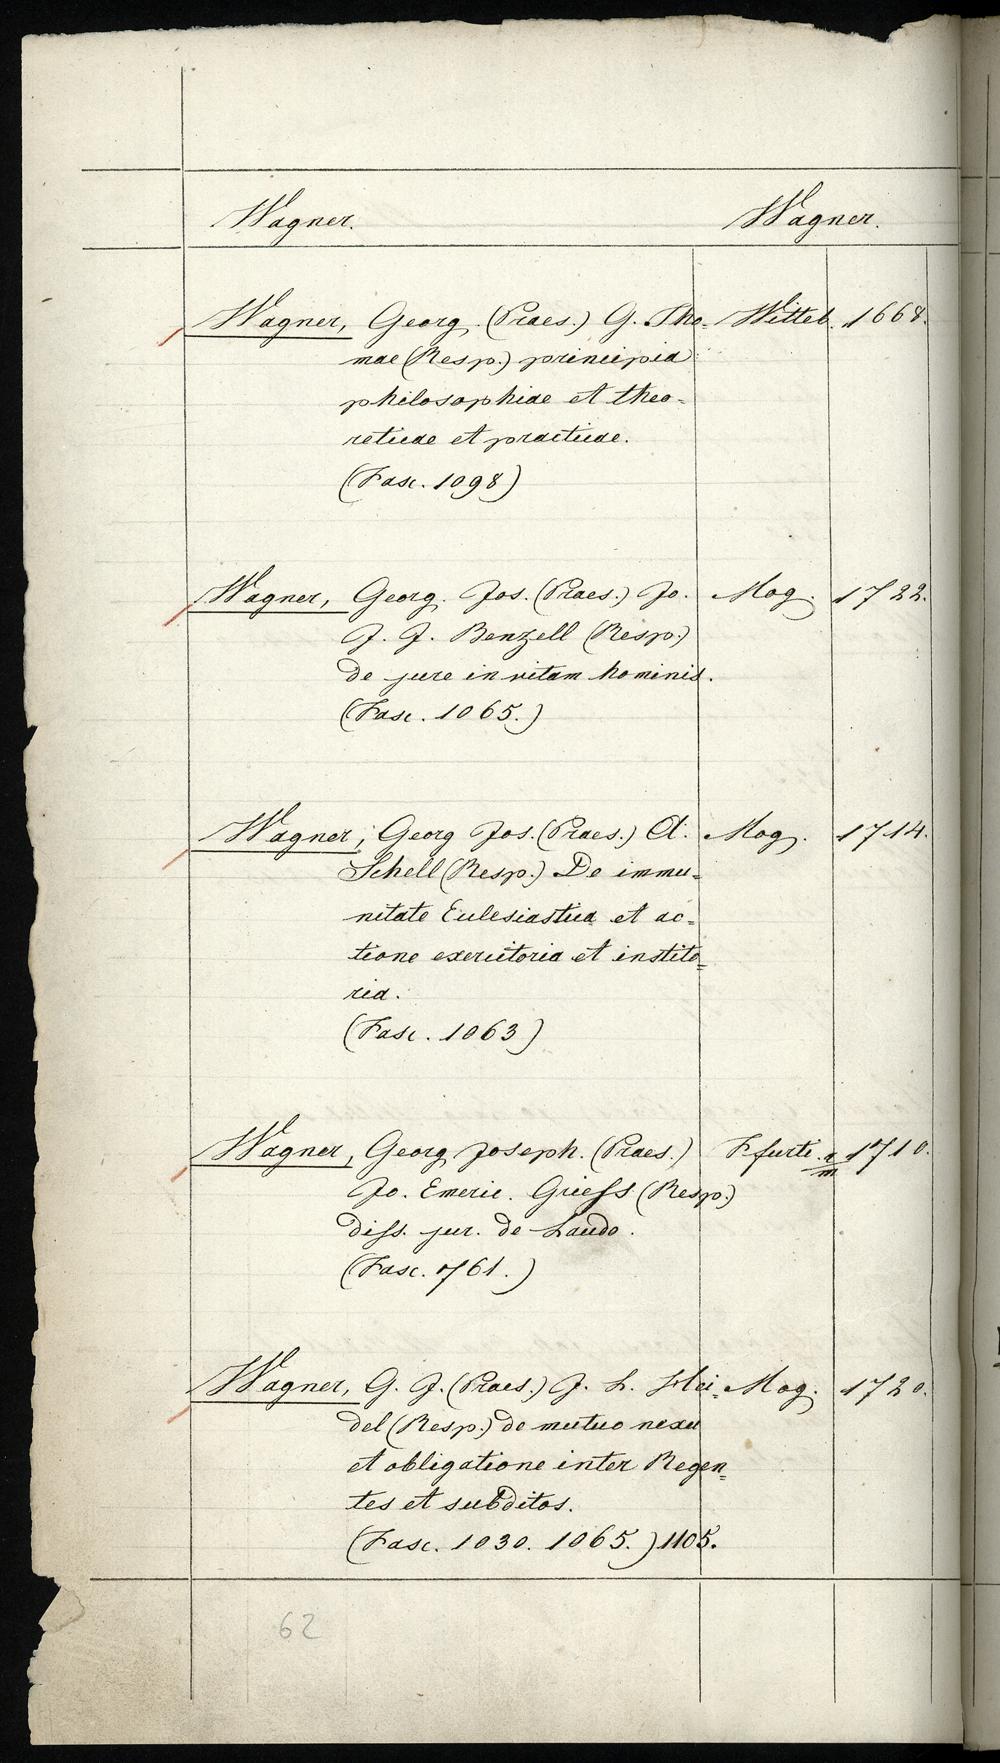 Wagner. Wagner.
Wagner, Georg. (Praes.) G. Tho- Witteb. 1668.
mae (Resp.) principia
philosophiae et theo=
reticae et practicae.
(Fasc. 1098)
Wagner, Georg. Jos. (Praes.) Jo. Mog. 1722.
J. J. Benzell (Resp.)
de jure in vitam hominis.
(Fasc. 1065.)
Wagner, Georg Jos. (Praes.) A. Mog. 1714.
Schell (Resp.) De immu=
nitate Eclesiastica et ac=
tione exercitoria et instito=
ria.
(Fasc. 1063)
Wagner, Georg Joseph. (Praes.) Ffurti. a/m 1710.
Jo. Emeric. Griess (Resp.)
diss. jur. de Laudo.
(Fasc. 761.)
Wagner, G. J. (Praes.) J. L. Hei- Mog. 1720.
del (Resp.) de mutuo nexu
et obligatione inter Regen=
tes et subditos.
(Fasc. 1030. 1065.) 1105.
62